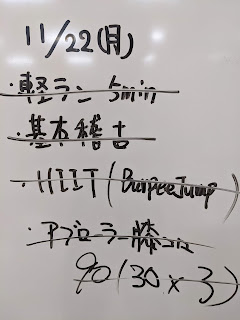 11/22(月)
・軽ラン 5min
・基本稽古
・HIIT(BurpeeJump)
・アブローラー膝コロ
90(30×3)